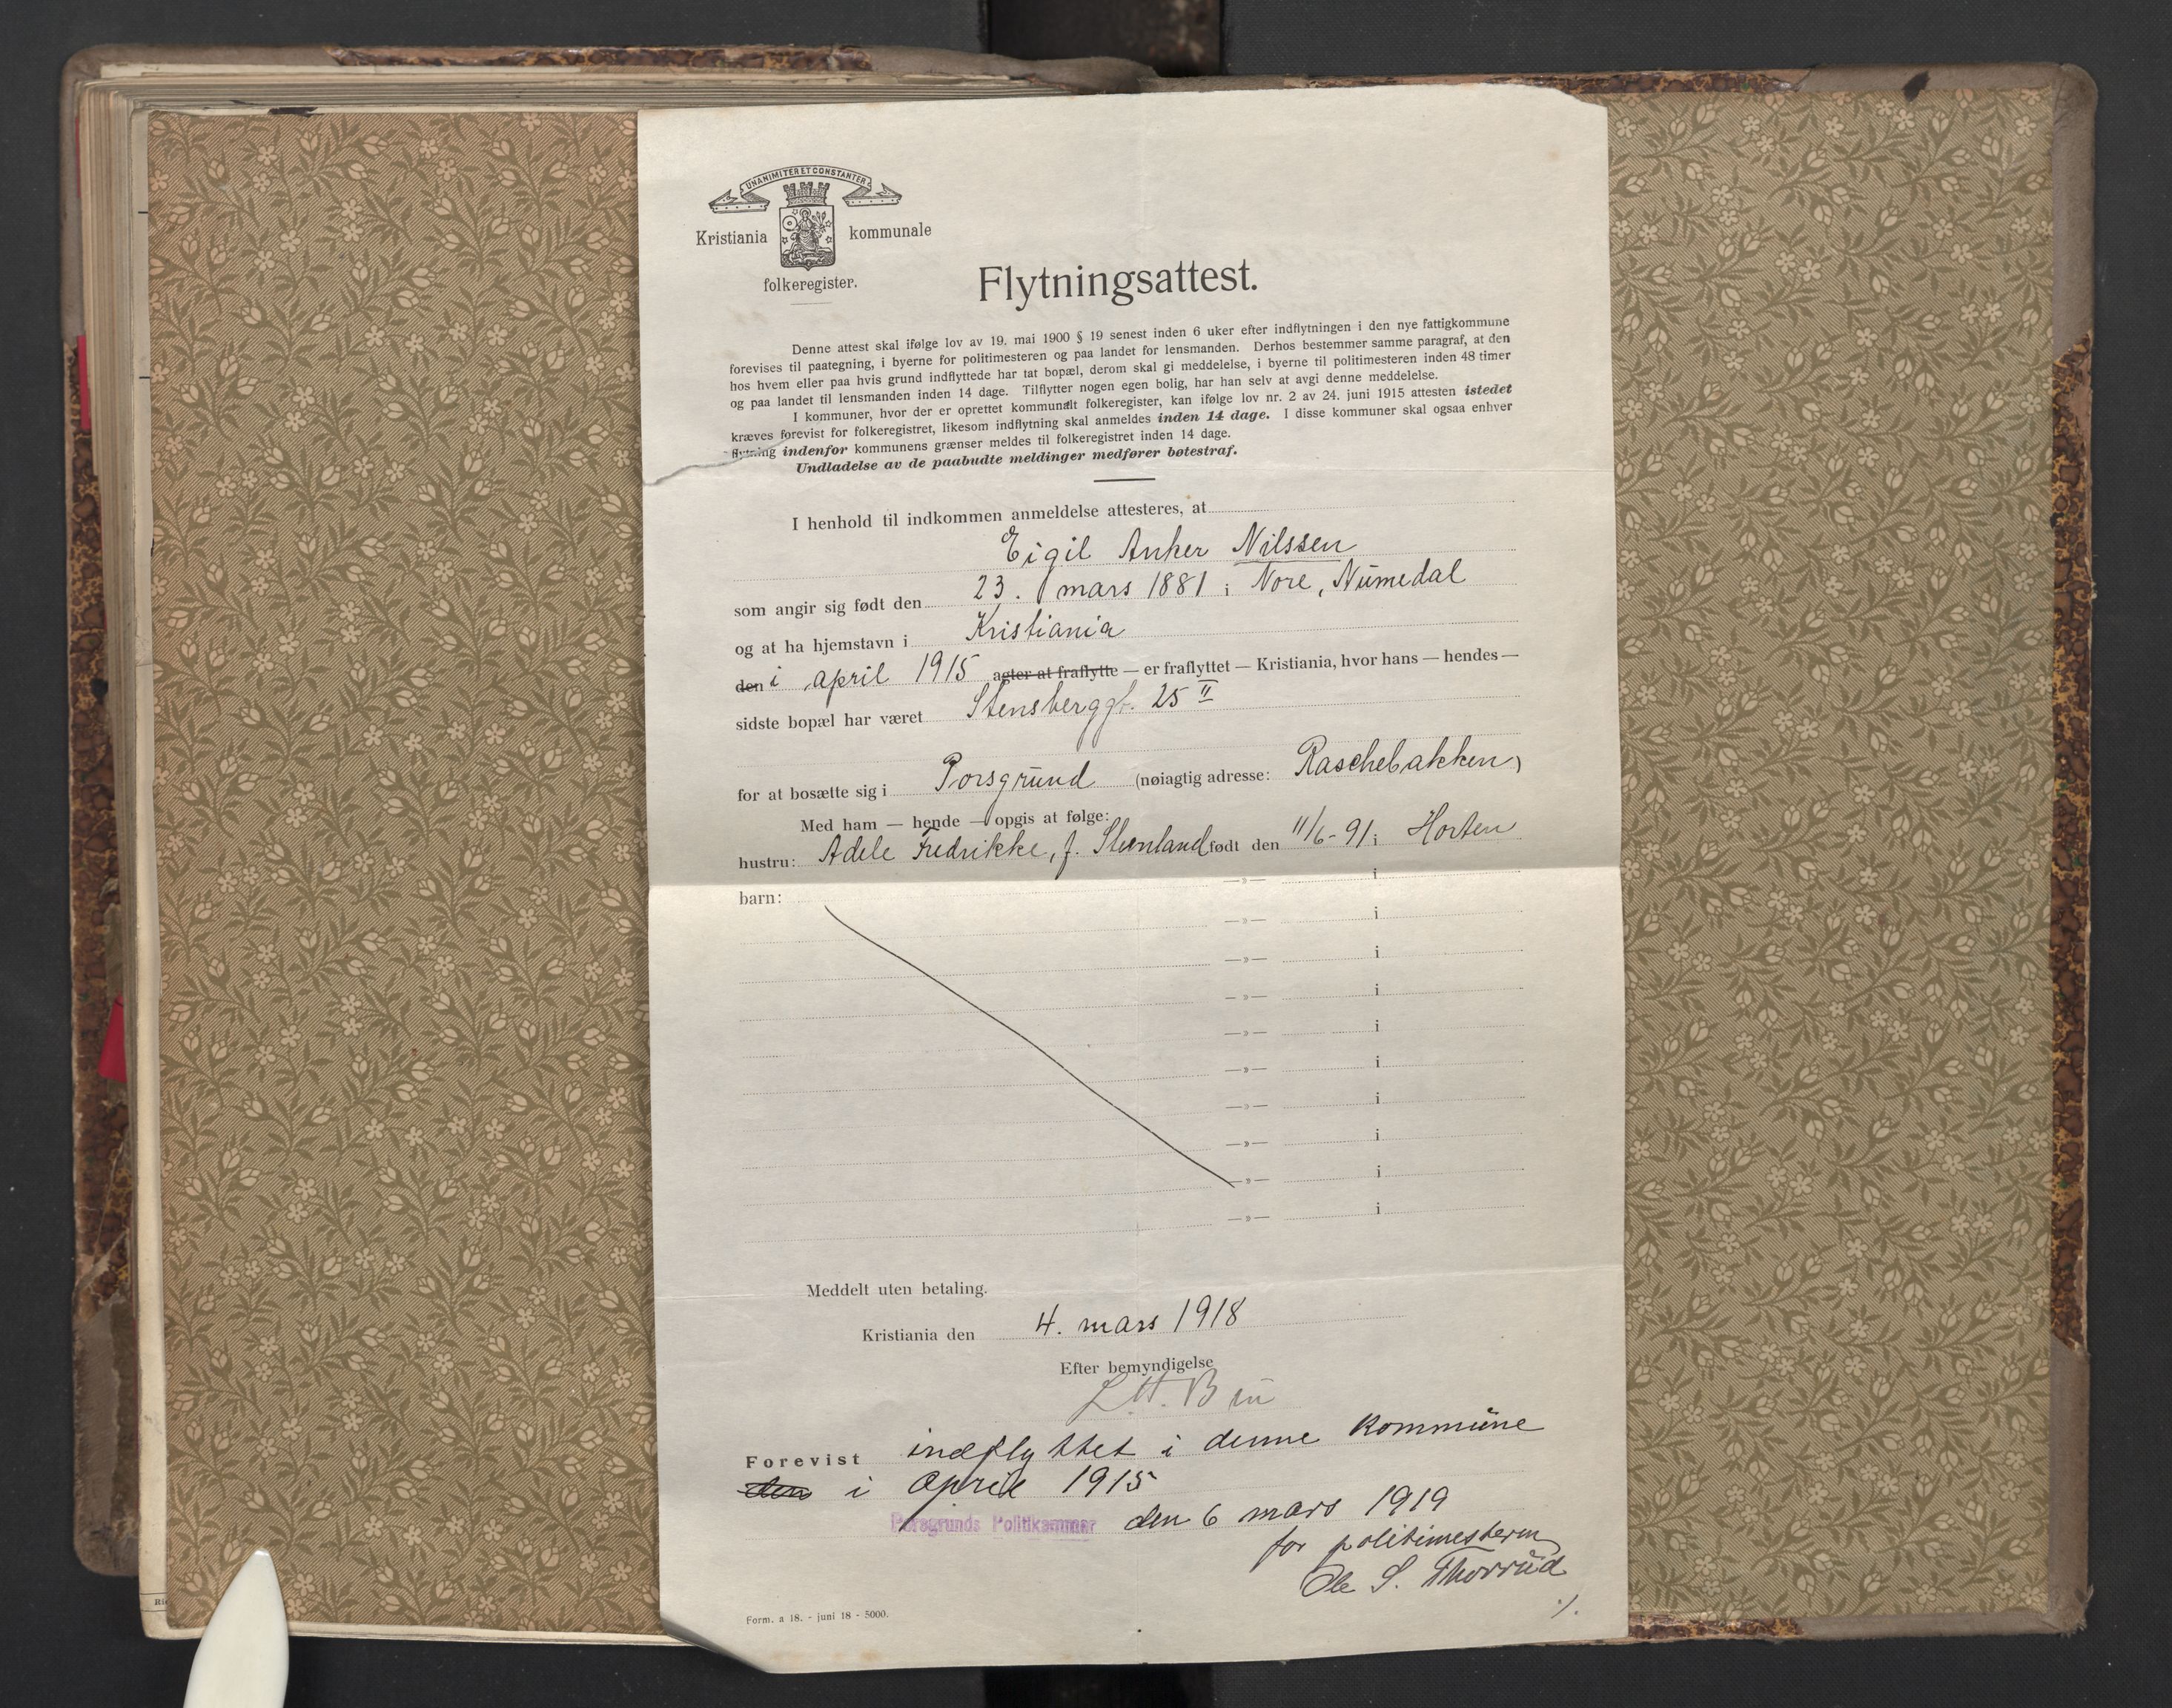 UNANIMITER ET CONSTANTER
Kristiania kommunale
folkeregister.
Flytningsattest.
Denne attest skal ifølge lov av 19. mai 1900 § 19 senest inden 6 uker efter indflytningen i den nye fattigkommune
forevises til paategning, i byerne for politimesteren og paa landet for lensmanden. Derhos bestemmer samme paragraf, at den
hos hvem eller paa hvis grund indflyttede har tat bopæl, derom skal gi meddelelse, i byerne til politimesteren inden 48 timer
og paa landet til lensmanden inden 14 dage. Tilflytter nogen egen bolig, har han selv at avgi denne meddelelse.
I kommuner, hvor der er oprettet kommunalt folkeregister, kan ifølge lov nr. 2 av 24. juni 1915 attesten istedet
kræves forevist for folkeregistret, likesom indflytning skal anmeldes inden 14 dage. I disse kommuner skal ogsaa enhver
flytning indenfor kommunens grænser meldes til folkeregistret inden 14 dage.
Undladelse av de paabudte meldinger medfører bøtestraf.
I henhold til indkommen anmeldelse attesteres, at
Eigil Anker Nilssen
som angir sig født den 23. mars 1881 i Nore, Numedal
og at ha hjemstavn i Kristiania
den i april 1915 agter at fraflytte — er fraflyttet — Kristiania, hvor hans — hendes —
sidste bopæl har været Stensberggt. 25 II
for at bosætte sig i Porsgrund (nøiagtig adresse: Raschebakken)
Med ham — hende — opgis at følge:
hustru: Adele Fredrikke, f. Steenland født den 11/6-91 i Horten
barn: —»— i
—»— i
—»— i
—»— i
—»— i
—»— i
—»— i
—»— i
—»— i
—»— i
Meddelt uten betaling.
Kristiania den 4. mars 1918
Efter bemyndigelse
Forevist indflyttet i denne kommune
den i april 1915
Porsgrunds Politikammer den 6 mars 1919
for politimesteren
Ole S. Thorrud
Form. a 18. - juni 18 - 5000.